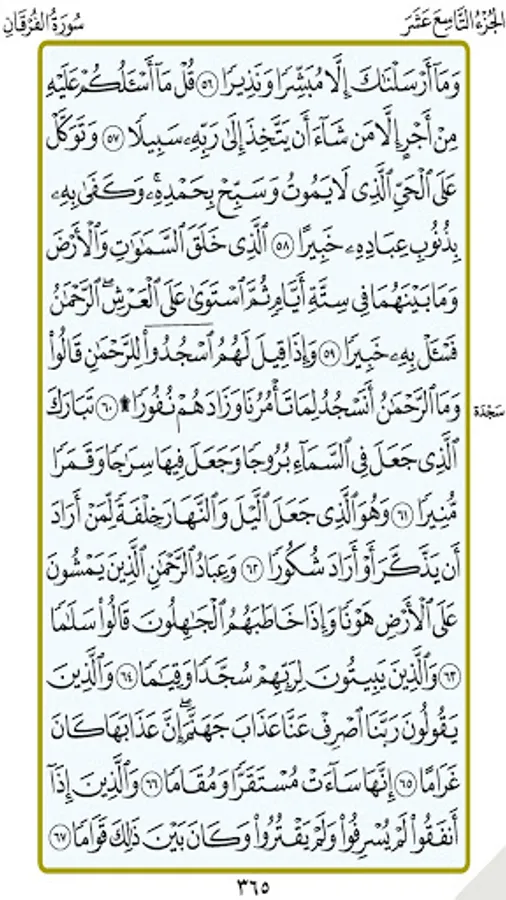 الجُزْءُ التَّاسِعَ عَشَرَ
سُورَةُ الفُرْقَانِ
وَمَآ أَرْسَلْنَٰكَ إِلَّا مُبَشِّرًا وَنَذِيرًا ٥٦ قُلْ مَآ أَسْـَٔلُكُمْ عَلَيْهِ
مِنْ أَجْرٍ إِلَّا مَن شَآءَ أَن يَتَّخِذَ إِلَىٰ رَبِّهِۦ سَبِيلًا ٥٧ وَتَوَكَّلْ
عَلَى ٱلْحَىِّ ٱلَّذِى لَا يَمُوتُ وَسَبِّحْ بِحَمْدِهِۦۚ وَكَفَىٰ بِهِۦ
بِذُنُوبِ عِبَادِهِۦ خَبِيرًا ٥٨ ٱلَّذِى خَلَقَ ٱلسَّمَٰوَٰتِ وَٱلْأَرْضَ
وَمَا بَيْنَهُمَا فِى سِتَّةِ أَيَّامٍ ثُمَّ ٱسْتَوَىٰ عَلَى ٱلْعَرْشِۖ ٱلرَّحْمَٰنُ
فَسْـَٔلْ بِهِۦ خَبِيرًا ٥٩ وَإِذَا قِيلَ لَهُمُ ٱسْجُدُوا۟ لِلرَّحْمَٰنِ قَالُوا۟
وَمَا ٱلرَّحْمَٰنُ أَنَسْجُدُ لِمَا تَأْمُرُنَا وَزَادَهُمْ نُفُورًا ۩ ٦٠ تَبَارَكَ
سَجْدَة
ٱلَّذِى جَعَلَ فِى ٱلسَّمَآءِ بُرُوجًا وَجَعَلَ فِيهَا سِرَٰجًا وَقَمَرًا
مُّنِيرًا ٦١ وَهُوَ ٱلَّذِى جَعَلَ ٱلَّيْلَ وَٱلنَّهَارَ خِلْفَةً لِّمَنْ أَرَادَ
أَن يَذَّكَّرَ أَوْ أَرَادَ شُكُورًا ٦٢ وَعِبَادُ ٱلرَّحْمَٰنِ ٱلَّذِينَ يَمْشُونَ
عَلَى ٱلْأَرْضِ هَوْنًا وَإِذَا خَاطَبَهُمُ ٱلْجَٰهِلُونَ قَالُوا۟ سَلَٰمًا
٦٣ وَٱلَّذِينَ يَبِيتُونَ لِرَبِّهِمْ سُجَّدًا وَقِيَٰمًا ٦٤ وَٱلَّذِينَ
يَقُولُونَ رَبَّنَا ٱصْرِفْ عَنَّا عَذَابَ جَهَنَّمَۖ إِنَّ عَذَابَهَا كَانَ
غَرَامًا ٦٥ إِنَّهَا سَآءَتْ مُسْتَقَرًّا وَمُقَامًا ٦٦ وَٱلَّذِينَ إِذَآ
أَنفَقُوا۟ لَمْ يُسْرِفُوا۟ وَلَمْ يَقْتُرُوا۟ وَكَانَ بَيْنَ ذَٰلِكَ قَوَامًا ٦٧
٣٦٥